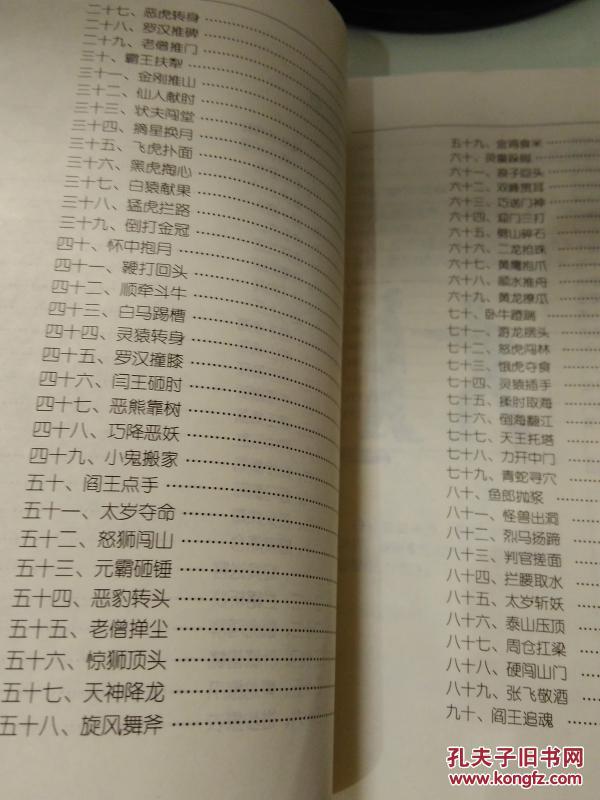 二十七、恶虎转身
二十八、罗汉推碑
二十九、老僧推门
三十、霸王扶犁
三十一、金刚推山
三十二、仙人献肘
三十三、状夫闯堂
三十四、摘星换月
三十五、飞虎扑面
三十六、黑虎掏心
三十七、白猿献果
三十八、猛虎拦路
三十九、倒打金冠
四十、怀中抱月
四十一、鞭打回头
四十二、顺牵斗牛
四十三、白马踢槽
四十四、灵猿转身
四十五、罗汉撞膝
四十六、闫王砸肘
四十七、恶熊靠树
四十八、巧降恶妖
四十九、小鬼搬家
五十、阎王点手
五十一、太岁夺命
五十二、怒狮闯山
五十三、元霸砸锤
五十四、恶豹转头
五十五、老僧掸尘
五十六、惊狮顶头
五十七、天神降龙
五十八、旋风舞斧
五十九、金鸡食米
六十、灵童跺脚
六十一、浪子回头
六十二、双峰贯耳
六十三、巧送门神
六十四、迎门三打
六十五、劈山碎石
六十六、二龙抢珠
六十七、黄鹰抱爪
六十八、顺水推舟
六十九、黄龙撩爪
七十、卧牛蹬蹄
七十一、游龙摆头
七十二、怒虎闯林
七十三、饿虎夺食
七十四、灵猿插手
七十五、揉肘取海
七十六、倒海翻江
七十七、天王托塔
七十八、力开中门
七十九、青蛇寻穴
八十、鱼郎抛浆
八十一、怪兽出洞
八十二、烈马扬蹄
八十三、判官搓面
八十四、拦腰取水
八十五、太岁斩妖
八十六、泰山压顶
八十七、周仓扛梁
八十八、硬闯山门
八十九、张飞敬酒
九十、阎王追魂
孔夫子旧书网
www.kongfz.com